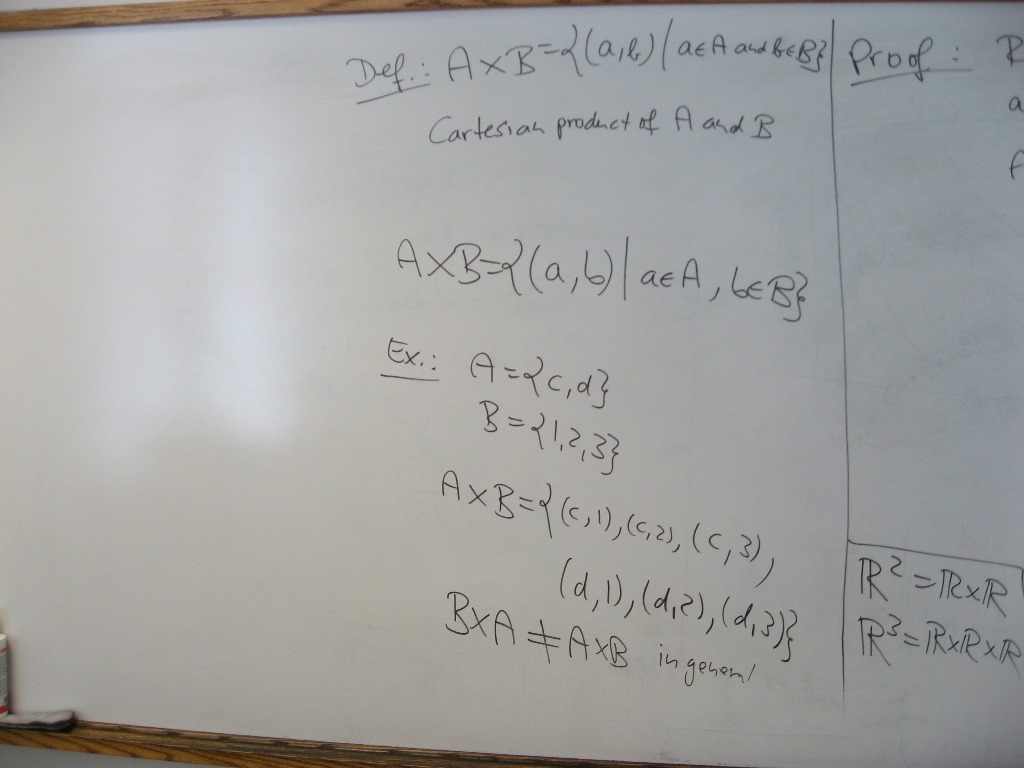 Def.: A×B={(a,b) | a∈A and b∈B}
Cartesian product of A and B
A×B={(a,b) | a∈A, b∈B}
Ex.: A={c,d}
B={1,2,3}
A×B={(c,1),(c,2),(c,3),
(d,1),(d,2),(d,3)}
B×A≠A×B in general
Proof:
a
ℝ²=ℝ×ℝ
ℝ³=ℝ×ℝ×ℝ